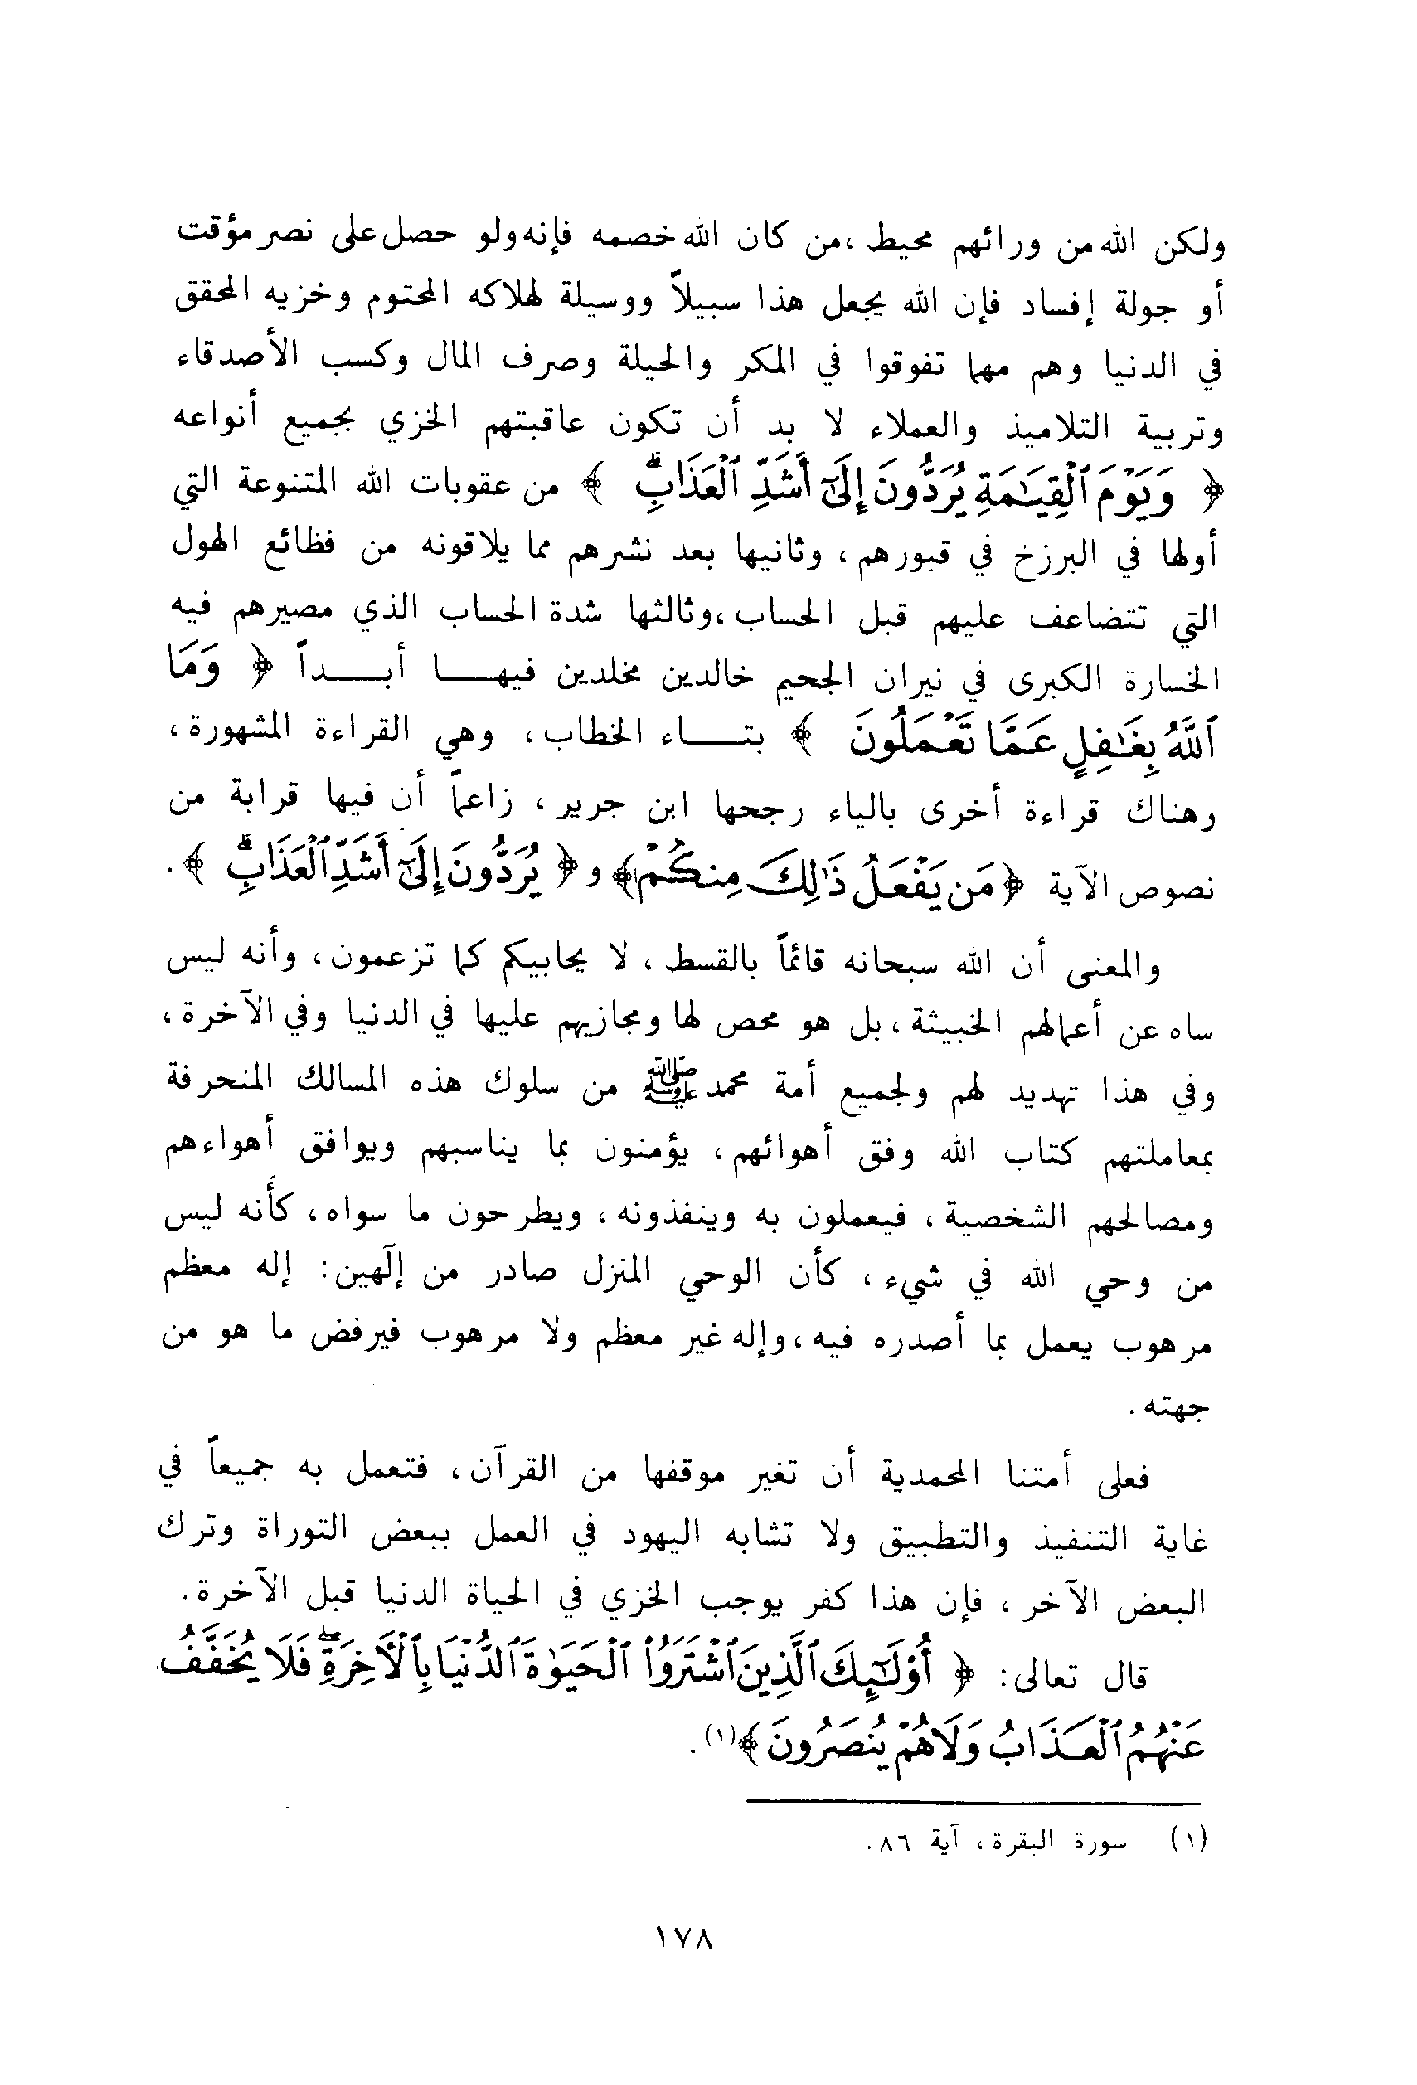 ولكن الله من ورائهم محيط ، من كان الله خصمه فإنه ولو حصل على نصر مؤقت
أو جولة إفساد فإن الله يجعل هذا سبيلاً ووسيلة لهلاكه المحتوم وخزيه المحقق
في الدنيا وهم مهما تفوقوا في المكر والحيلة وصرف المال وكسب الأصدقاء
وتربية التلاميذ والعملاء لا بد أن تكون عاقبتهم الخزي بجميع أنواعه
﴿ وَيَوْمَ ٱلْقِيَـٰمَةِ يُرَدُّونَ إِلَىٰٓ أَشَدِّ ٱلْعَذَابِۗ ﴾ من عقوبات الله المتنوعة التي
أولها في البرزخ في قبورهم ، وثانيها بعد نشرهم مما يلاقونه من فظائع الهول
التي تتضاعف عليهم قبل الحساب ، وثالثها شدة الحساب الذي مصيرهم فيه
الخسارة الكبرى في نيران الجحيم خالدين مخلدين فيهـا أبـداً ﴿ وَمَا
ٱللَّهُ بِغَـٰفِلٍ عَمَّا تَعْمَلُونَ ﴾ بتـاء الخطاب ، وهي القراءة المشهورة ،
وهناك قراءة أخرى بالياء رجحها ابن جرير ، زاعماً أن فيها قرابة من
نصوص الآية ﴿مَن يَفْعَلُ ذَٰلِكَ مِنكُمْ﴾ و﴿ يُرَدُّونَ إِلَىٰٓ أَشَدِّ ٱلْعَذَابِۗ ﴾.
والمعنى أن الله سبحانه قائماً بالقسط ، لا يحابيكم كما تزعمون ، وأنه ليس
ساه عن أعمالهم الخبيثة ، بل هو محص لها ومجازيهم عليها في الدنيا وفي الآخرة ،
وفي هذا تهديد لهم ولجميع أمة محمد ﷺ من سلوك هذه المسالك المنحرفة
بمعاملتهم كتاب الله وفق أهوائهم ، يؤمنون بما يناسبهم ويوافق أهواءهم
ومصالحهم الشخصية ، فيعملون به وينفذونه ، ويطرحون ما سواه ، كأنه ليس
من وحي الله في شيء ، كأن الوحي المنزل صادر من إلٓهين : إله معظم
مرهوب يعمل بما أصدره فيه ، وإله غير معظم ولا مرهوب فيرفض ما هو من
جهته .
فعلى أمتنا المحمدية أن تغير موقفها من القرآن ، فتعمل به جميعاً في
غاية التنفيذ والتطبيق ولا تشابه اليهود في العمل ببعض التوراة وترك
البعض الآخر ، فإن هذا كفر يوجب الخزي في الحياة الدنيا قبل الآخرة .
قال تعالى : ﴿ أُوْلَـٰٓئِكَ ٱلَّذِينَ ٱشْتَرَوُاْ ٱلْحَيَوٰةَ ٱلدُّنْيَا بِٱلْأَخِرَةِۖ فَلَا يُخَفَّفُ
عَنْهُمُ ٱلْعَذَابُ وَلَا هُمْ يُنصَرُونَ ﴾(١) .
(١) سورة البقرة ، آية ٨٦ .
١٧٨